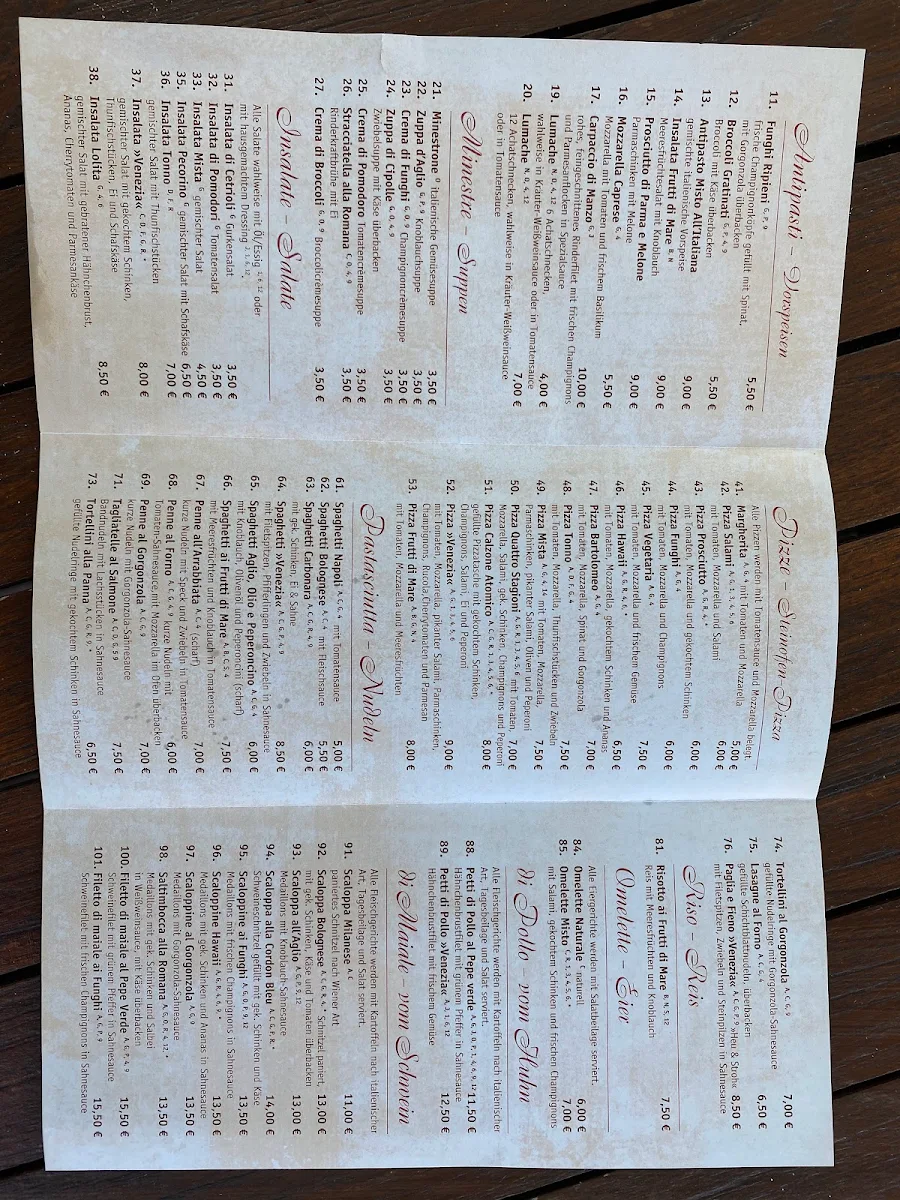 Antipasti – Vorspeisen
11. Funghi Ripieni G, P, 9
frische Champignonköpfe gefüllt mit Spinat,
mit Gorgonzola überbacken 5,50 €
12. Broccoli Gratinati G, P, 4, 9
Broccoli mit Käse überbacken 5,50 €
13. Antipasto Misto All'Italiana
gemischte italienische Vorspeise 9,00 €
14. Insalata Frutti di Mare B, N
Meeresfrüchtesalat mit Knoblauch 9,00 €
15. Prosciutto di Parma e Melone
Parmaschinken mit Melone 9,00 €
16. Mozzarella Caprese G, 4
Mozzarella mit Tomaten und frischem Basilikum 5,50 €
17. Carpaccio di Manzo G, 3
rohes, feingeschnittenes Rinderfilet mit frischen Champignons
und Parmesanflocken in Spezialsauce 10,00 €
19. Lumache N, Q, 4, 12 6 Achatschnecken,
wahlweise in Kräuter-Weißweinsauce oder in Tomatensauce 4,00 €
20. Lumache N, Q, 4, 12
12 Achatschnecken, wahlweise in Kräuter-Weißweinsauce
oder in Tomatensauce 7,00 €
Minestre – Suppen
21. Minestrone O italienische Gemüsesuppe 3,50 €
22. Zuppa d'Aglio G, P, 9 Knoblauchsuppe 3,50 €
23. Crema di Funghi G, 9 Champignoncrèmesuppe 3,50 €
24. Zuppa di Cipolle G, 4, 9
Zwiebelsuppe mit Käse überbacken 3,50 €
25. Crema di Pomodoro Tomatencrèmesuppe 3,50 €
26. Stracciatella alla Romana C, G, 4, 9
Rinderkraftbrühe mit Ei 3,50 €
27. Crema di Broccoli G, 9 Broccolicrèmesuppe 3,50 €
Insalate – Salate
Alle Salate wahlweise mit Öl/Essig L, 6, 12 oder
mit hausgemachtem Dressing
31. Insalata di Cetrioli G Gurkensalat 3,50 €
32. Insalata di Pomodori G Tomatensalat 3,50 €
33. Insalata Mista G gemischter Salat 4,50 €
35. Insalata Pecorino G gemischter Salat mit Schafskäse 6,50 €
36. Insalata Tonno D, F, R
gemischter Salat mit Thunfischstücken 7,00 €
37. Insalata »Venezia«
gemischter Salat mit gekochtem Schinken,
Thunfischstücken, Ei und Schafskäse 8,00 €
38. Insalata Lofita G, 4, 6
gemischter Salat mit gebratener Hähnchenbrust,
Ananas, Cherrytomaten und Parmesankäse 8,50 €
Pizza – Steinofen-Pizza
Alle Pizzen werden mit Tomatensauce und Mozzarella belegt.
41. Margherita A, G, 4 mit Tomaten und Mozzarella 5,00 €
42. Pizza Salami
mit Tomaten, Mozzarella und Salami 6,00 €
43. Pizza Prosciutto
mit Tomaten, Mozzarella und gekochtem Schinken 6,00 €
44. Pizza Funghi A, G, 4
mit Tomaten, Mozzarella und Champignons 6,00 €
45. Pizza Vegetaria A, G, 4
mit Tomaten, Mozzarella und frischem Gemüse 7,50 €
46. Pizza Hawaii
mit Tomaten, Mozzarella, gekochtem Schinken und Ananas 6,50 €
47. Pizza Bartolomeo A, G, 4
mit Tomaten, Mozzarella, Spinat und Gorgonzola 7,00 €
48. Pizza Tonno A, D, G, 4
mit Tomaten, Mozzarella, Thunfischstücken und Zwiebeln 7,50 €
49. Pizza Mista A, G, 4, 14 mit Tomaten, Mozzarella,
Parmaschinken, pikanter Salami, Oliven und Peperoni 7,50 €
50. Pizza Quatro Stagioni mit Tomaten,
Mozzarella, Salami, gek. Schinken, Champignons und Peperoni 7,00 €
51. Pizza Calzone Atomico
gefüllte Pizzatasche mit gekochtem Schinken,
Champignons, Salami, Ei und Peperoni 8,00 €
52. Pizza »Venezia«
mit Tomaten, Mozzarella, pikanter Salami, Parmaschinken,
Champignons, Rucola, Cherrytomaten und Parmesan 9,00 €
53. Pizza Frutti di Mare A, B, G, N, 4
mit Tomaten, Mozzarella und Meeresfrüchten 8,00 €
Pastasciutta – Nudeln
61. Spaghetti Napoli A, C, G, 4 mit Tomatensauce 5,00 €
62. Spaghetti Bolognese mit Fleischsauce 5,50 €
63. Spaghetti Carbonara A, C, G, R, 4, 9
mit gek. Schinken, Ei & Sahne 6,00 €
64. Spaghetti »Venezia« A, C, G, P, 4, 9
mit Filetspitzen, Pfifferlingen und Zwiebeln in Sahnesauce 8,50 €
65. Spaghetti Aglio, Olio e Peperoncino A, C, G, 4
mit Knoblauch, Olivenöl und Peperoncini (scharf) 6,00 €
66. Spaghetti ai Frutti di Mare A, B, C, G, 4
mit Meeresfrüchten und Knoblauch in Tomatensauce 7,50 €
67. Penne all'Arrabbiata A, C, G, 4 (scharf)
kurze Nudeln mit Speck und Zwiebeln in Tomatensauce 7,00 €
68. Penne al Forno A, C, G, 4, 9 kurze Nudeln mit
Tomaten-Sahnesauce, mit Mozzarella im Ofen überbacken 6,00 €
69. Penne al Gorgonzola A, C, G, 9
kurze Nudeln mit Gorgonzola-Sahnesauce 7,00 €
71. Tagliatelle al Salmone A, C, D, G, 5 9
Bandnudeln mit Lachsstücken in Sahnesauce 7,50 €
73. Tortellini alla Panna A, C, G, R, 9, *
gefüllte Nudelringe mit gekochtem Schinken in Sahnesauce 6,50 €
74. Tortellini al Gorgonzola A, C, G, 9
gefüllte Nudelringe mit Gorgonzola-Sahnesauce 7,00 €
75. Lasagne al Forno A, C, G, 4
gefüllte Schichtblattnudeln, überbacken 6,50 €
76. Paglia e Fieno »Venezia« A, C, G, P, 9 »Heu & Stroh«
mit Filetspitzen, Zwiebeln und Steinpilzen in Sahnesauce 8,50 €
Riso – Reis
81. Risotto ai Frutti di Mare B, N, 5, 12
Reis mit Meeresfrüchten und Knoblauch 7,50 €
Omelette – Eier
Alle Eiergerichte werden mit Salatbeilage serviert.
84. Omelette Naturale C naturell 6,00 €
85. Omelette Misto C, R, 1, 3, 4, 5, 6, *
mit Salami, gekochtem Schinken und frischen Champignons 7,00 €
di Pollo – vom Huhn
Alle Fleischgerichte werden mit Kartoffeln nach italienischer
Art, Tagesbeilage und Salat serviert.
88. Petti di Pollo al Pepe verde 11,50 €
Hähnchenbrustfilet mit grünem Pfeffer in Sahnesauce
89. Petti di Pollo »Venezia« A, J, 1, 6, 12
Hähnchenbrustfilet mit frischem Gemüse 12,50 €
di Maiale – vom Schwein
Alle Fleischgerichte werden mit Kartoffeln nach italienischer
Art, Tagesbeilage und Salat serviert.
91. Scaloppa Milanese A, C, F
paniertes Schnitzel nach Wiener Art 11,00 €
92. Scaloppa Bolognese A, C, G, R, 4, * Schnitzel paniert,
mit gek. Schinken, Käse und Tomaten überbacken 13,00 €
93. Scaloppa all'Aglio A, G, P, 9, 12
Medaillons mit Knoblauch-Sahnesauce 13,00 €
94. Scaloppa alla Cordon Bleu A, C, F, G, R, *
Schweineschnitzel gefüllt mit gek. Schinken und Käse 14,00 €
95. Scaloppine ai Funghi A, G, P, 9, 12
Medaillons mit frischen Champignons in Sahnesauce 13,50 €
96. Scaloppine Hawaii A, G, R, 4, 9, *
Medaillons mit gek. Schinken und Ananas in Sahnesauce 13,50 €
97. Scaloppine al Gorgonzola A, G, 9
Medaillons mit Gorgonzola-Sahnesauce 13,50 €
98. Saltimbocca alla Romana
Medaillons mit gek. Schinken und Salbei
in Weißweinsauce, mit Käse überbacken 13,50 €
100. Filetto di maiale al Pepe Verde A, G, P, 4, 9
Schweinefilet mit grünem Pfeffer in Sahnesauce 15,50 €
101. Filetto di maiale ai Funghi A, G, P, 9
Schweinefilet mit frischen Champignons in Sahnesauce 15,50 €